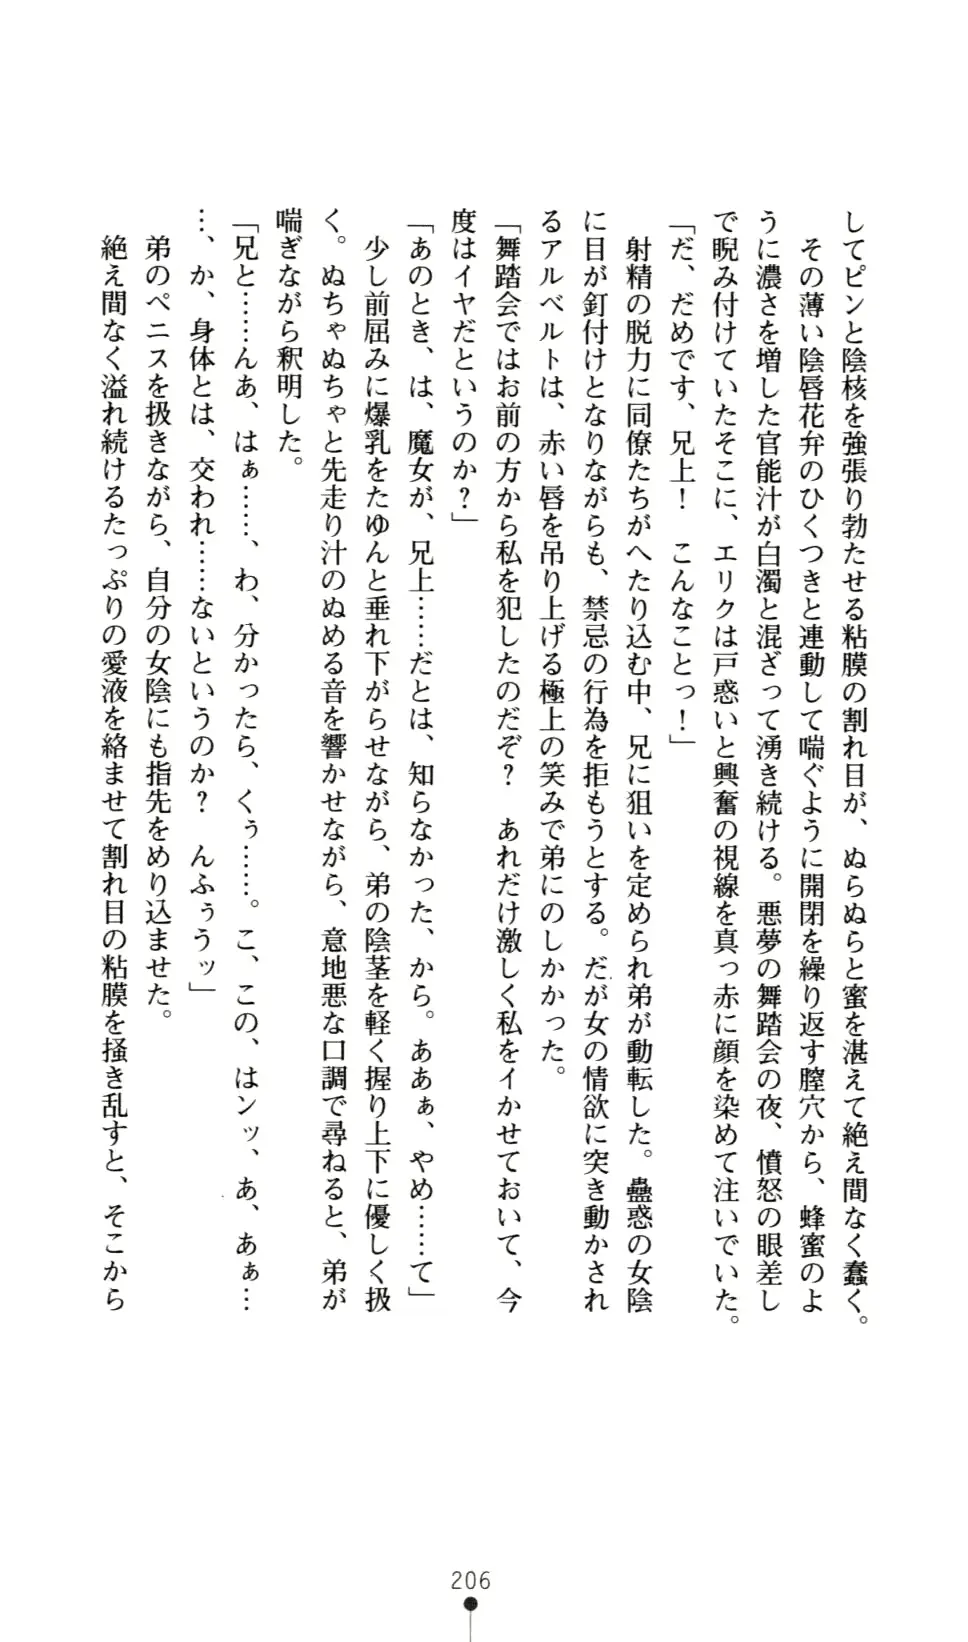 してピンと陰核を強張り勃たせる粘膜の割れ目が、ぬらぬらと蜜を湛えて絶え間なく蠢く。
その薄い陰唇花弁のひくつきと連動して喘ぐように開閉を繰り返す膣穴から、蜂蜜のよ
うに濃さを増した官能汁が白濁と混ざって湧き続ける。悪夢の舞踏会の夜、憤怒の眼差し
で睨み付けていたそこに、エリクは戸惑いと興奮の視線を真っ赤に顔を染めて注いでいた。
「だ、だめです、兄上！　こんなことっ！」
射精の脱力に同僚たちがへたり込む中、兄に狙いを定められ弟が動転した。蠱惑の女陰
に目が釘付けとなりながらも、禁忌の行為を拒もうとする。だが女の情欲に突き動かされ
るアルベルトは、赤い唇を吊り上げる極上の笑みで弟にのしかかった。
「舞踏会ではお前の方から私を犯したのだぞ？　あれだけ激しく私をイかせておいて、今
度はイヤだというのか？」
「あのとき、は、魔女が、兄上……だとは、知らなかった、から。ああぁ、やめ……て」
少し前屈みに爆乳をたゆんと垂れ下がらせながら、弟の陰茎を軽く握り上下に優しく扱
く。ぬちゃぬちゃと先走り汁のぬめる音を響かせながら、意地悪な口調で尋ねると、弟が
喘ぎながら釈明した。
「兄と……んあ、はぁ……、わ、分かったら、くぅ……。こ、この、はンッ、あ、あぁ…
…、か、身体とは、交われ……ないというのか？　んふぅうッ」
弟のペニスを扱きながら、自分の女陰にも指先をめり込ませた。
絶え間なく溢れ続けるたっぷりの愛液を絡ませて割れ目の粘膜を掻き乱すと、そこから
206